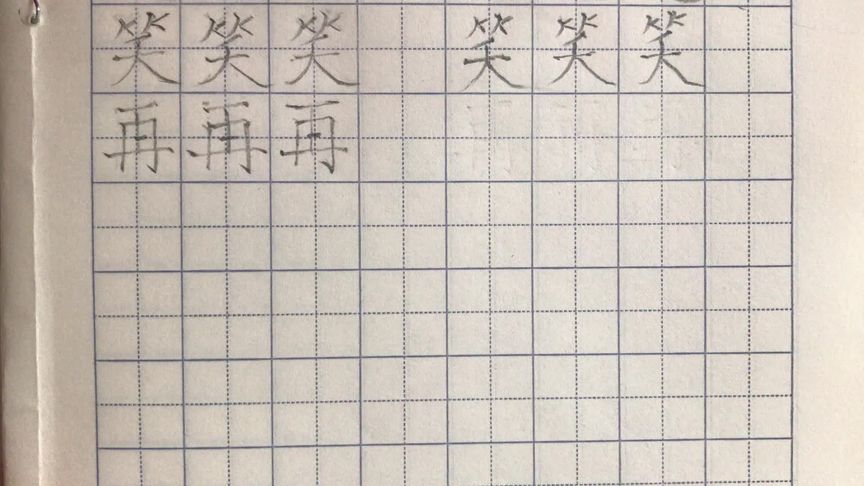 笑笑笑 笑笑笑
再再再